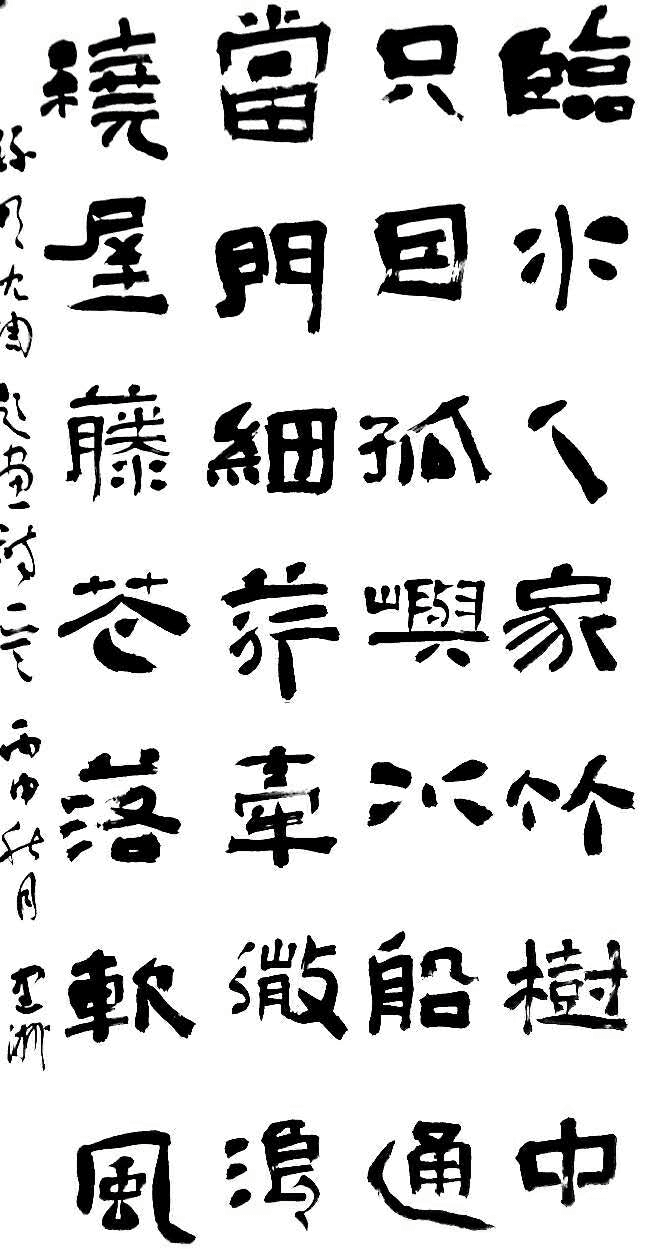 臨水人家竹樹中
只因孤嶼小船通
當門細荇牽微浪
繞屋藤花落軟風
錄明沈周題畫詩一首 丙申秋月 亚洲